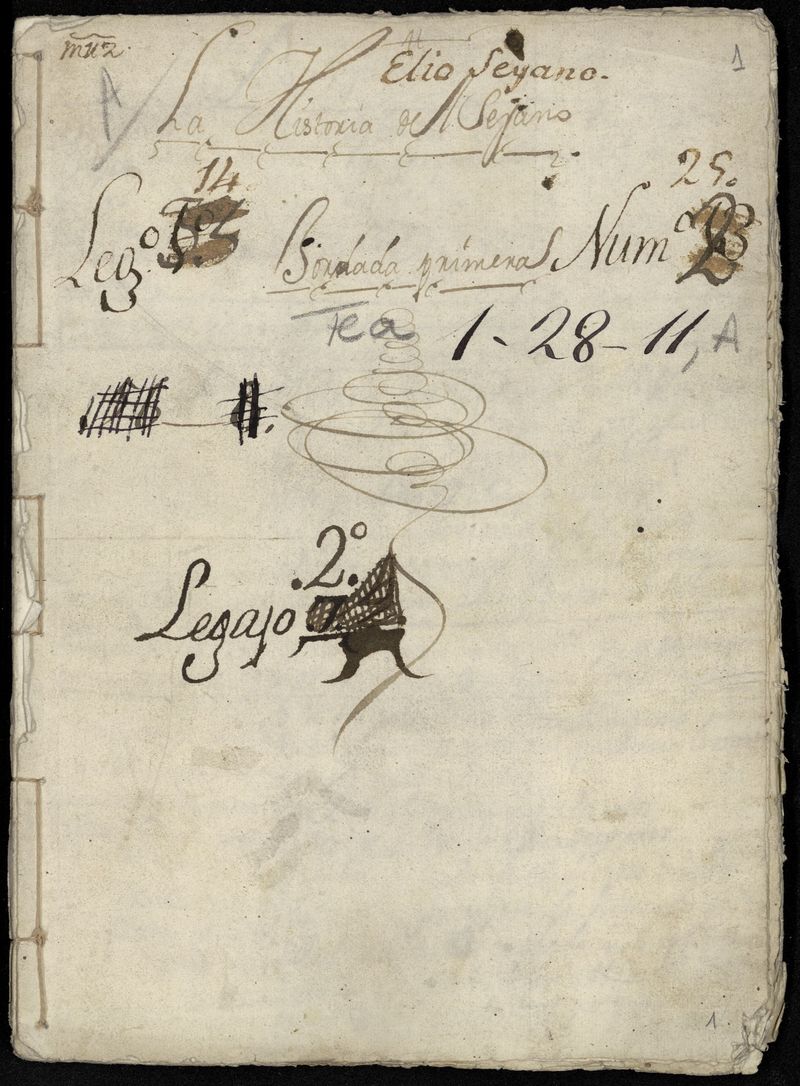 Elio Seyano.
1
A
La Historia del Sejano
14. 25.
Leg.º Jordada primera Num.º 2
Tea 1-28-11, A
.2.º
Legajo
1